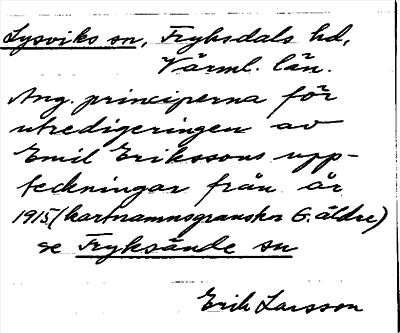 Lysviks sn, Fryksdals hd,
Värml. län.
Ang. principerna för
utredigeringen av
Emil Erikssons upp-
teckningar från år
1915 (kartnamnsgranskn G. äldre)
se Fryksände sn
Erik Larsson